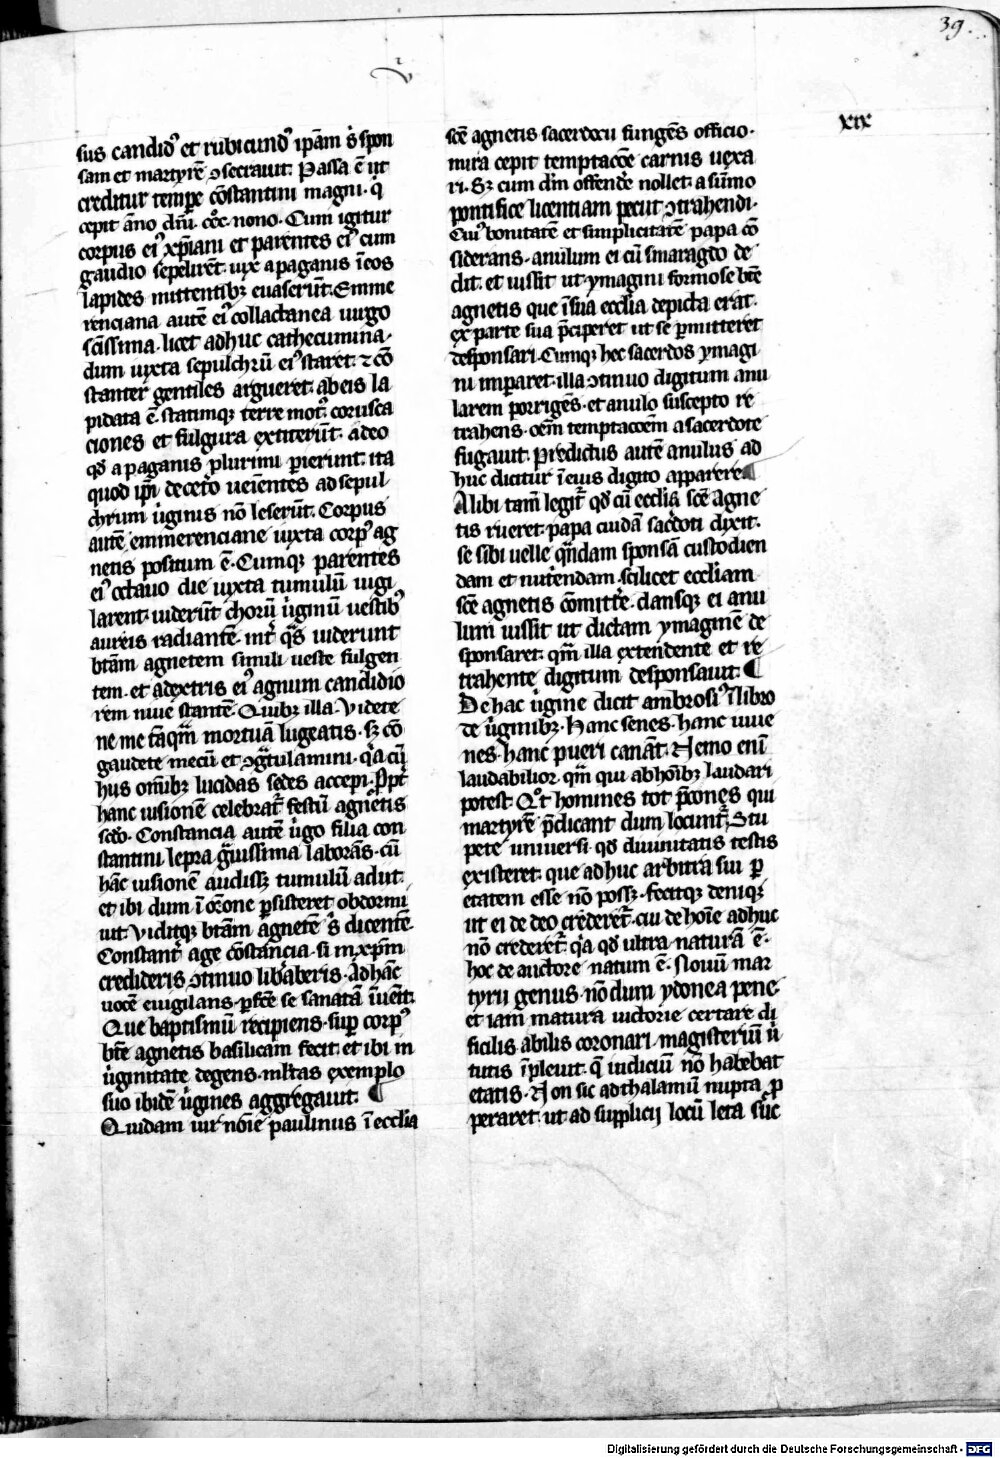 39.
xix
sus candidꝰ et rubicundꝰ ip̄am s̓ spon
sam et martyrē ↄsecrauit. Passa ē ut
creditur tempe cōstantini magni. q̓
cepit āno dn̄i. cōc. nono. Cum igitur
corpus eiꝰ xp̄iani et parentes eiꝰ cum
gaudio sepelirēt. uix a paganis ī eos
lapides mittentibꝫ euaserūt. Emme
renciana autē eiꝰ collactanea uirgo
sc̄issima. licet adhuc cathecumina.
dum iuxta sepulchrū eiꝰ staret. ⁊ cō
stanter gentiles argueret. ab eis la
pidata ē. statimqꝫ terre motꝰ. corusca
ciones et fulgura extiterūt. adeo
qd̓ a paganis plurimi pierunt. ita
quod ip̄i decet̓o ueientes ad sepul
chrum u̓ginis nō leserūt. Corpus
autē emmerenciane iuxta corpꝰ ag
netis positum ē. Cumqꝫ parentes
eiꝰ octauo die iuxta tumulū uigi
larent. uiderūt chorū u̓ginū uestibꝰ
aureis radiantē. int̓ q̄s uiderunt
btām agnetem simili ueste fulgen
tem. et a dextris eiꝰ agnum candidio
rem niue stantē. Quibꝫ illa. Videte
ne me tāqm̄ mortuā lugeatis. sꝫ cō
gaudete mecū et ↄgͣtulamini. qͥa cū
hijs om̄ibꝫ lucidas sedes accepi. Ppt̓
hanc uisionē celebrat̓ festū agnetis
scd̓o. Constancia autē u̓go filia con
stantini lepra gͣuissima laborās. cū
hāc uisionē audissꝫ tumulū adiit.
et ibi dum ī or̄one psisteret obdormi
uit. Viditqꝫ btām agnetē s̓ dicentē.
Constant̓ age cōstancia. si in xp̄m
credideris ↄtinuo lib̓aberis. Ad hāc
uocē euigilans. pfc̄e se sanatā īuēit.
Que baptismū recipiens. sup corpꝰ
bt̄e agnetis basilicam fecit. et ibi in
u̓ginitate degens. ml̓tas exemplo
suo ibidē u̓gines aggregauit.
Quidam uir nōie paulinus ī ecc̄lia
sc̄e agnetis sacerdocii fungēs officio.
mira cepit temptacōe carnis uexa
ri. Sꝫ cum dm̄ offende̓ nollet. a sūmo
pontifice licentiam peciit ↄtrahendi.
Cuiꝰ bonitatē et simplicitatē papa cō
siderans. anulum ei cū smaragdo de
dit. et iussit ut ymagini formose bt̄e
agnetis que ī sua ecc̄lia depicta erat.
ex parte sua p̄ciperet ut se pmitteret
desponsari. Cumqꝫ hec sacerdos ymagi
ni impͣaret. illa ↄtinuo digitum anu
larem porrigēs. et anulo suscepto re
trahens. oēm temptacoēm a sacerdote
fugauit. Predictus autē anulus ad
huc dicitur ī eius digito apparere
Alibi tam̄ legit̓ qd̓ cū ecc̄lia sc̄e agne
tis rueret. papa cuidā sacd̓oti dixit.
se sibi uelle qn̄dam sponsā custodien
dam et nut̓iendam. scilicet ecc̄liam
sc̄e agnetis cōmitte̓. dansqꝫ ei anu
lum iussit ut dictam ymaginē de
sponsaret. qm̄ illa extendente et re
trahente digitum desponsauit.
De hac u̓gine dicit ambrosiꝰ ī libro
de u̓ginibꝫ. Hanc senes. hanc iuue
nes. hanc pueri canāt. Nemo enī
laudabilior. qm̄ qui ab hoībꝫ laudari
potest. Qͦt homines tot p̄cones qui
martyrē p̄dicant dum locunt̓. Stu
pete uniuersi. qd̓ diuinitatis testis
existeret. que adhuc arbitra sui p
etatem esse nō possꝫ. fecitqꝫ deniqꝫ
ut ei de deo crederet̓. cui de hoīe adhuc
nō crederet̓. qͥa qd̓ ultra naturā ē.
hoc de auctore natum ē. Nouū mar
tyrii genus. nō dum ydonea pene.
et iam matura uictorie certare di
ficilis abilis coronari. magisteriū u̓
tutis īpleuit. q̄ iudiciū nō habebat
etatis. Non sic ad thalamū nupta p
peraret. ut ad supplicij locū leta suc̄
Digitalisierung gefördert durch die Deutsche Forschungsgemeinschaft - DFG